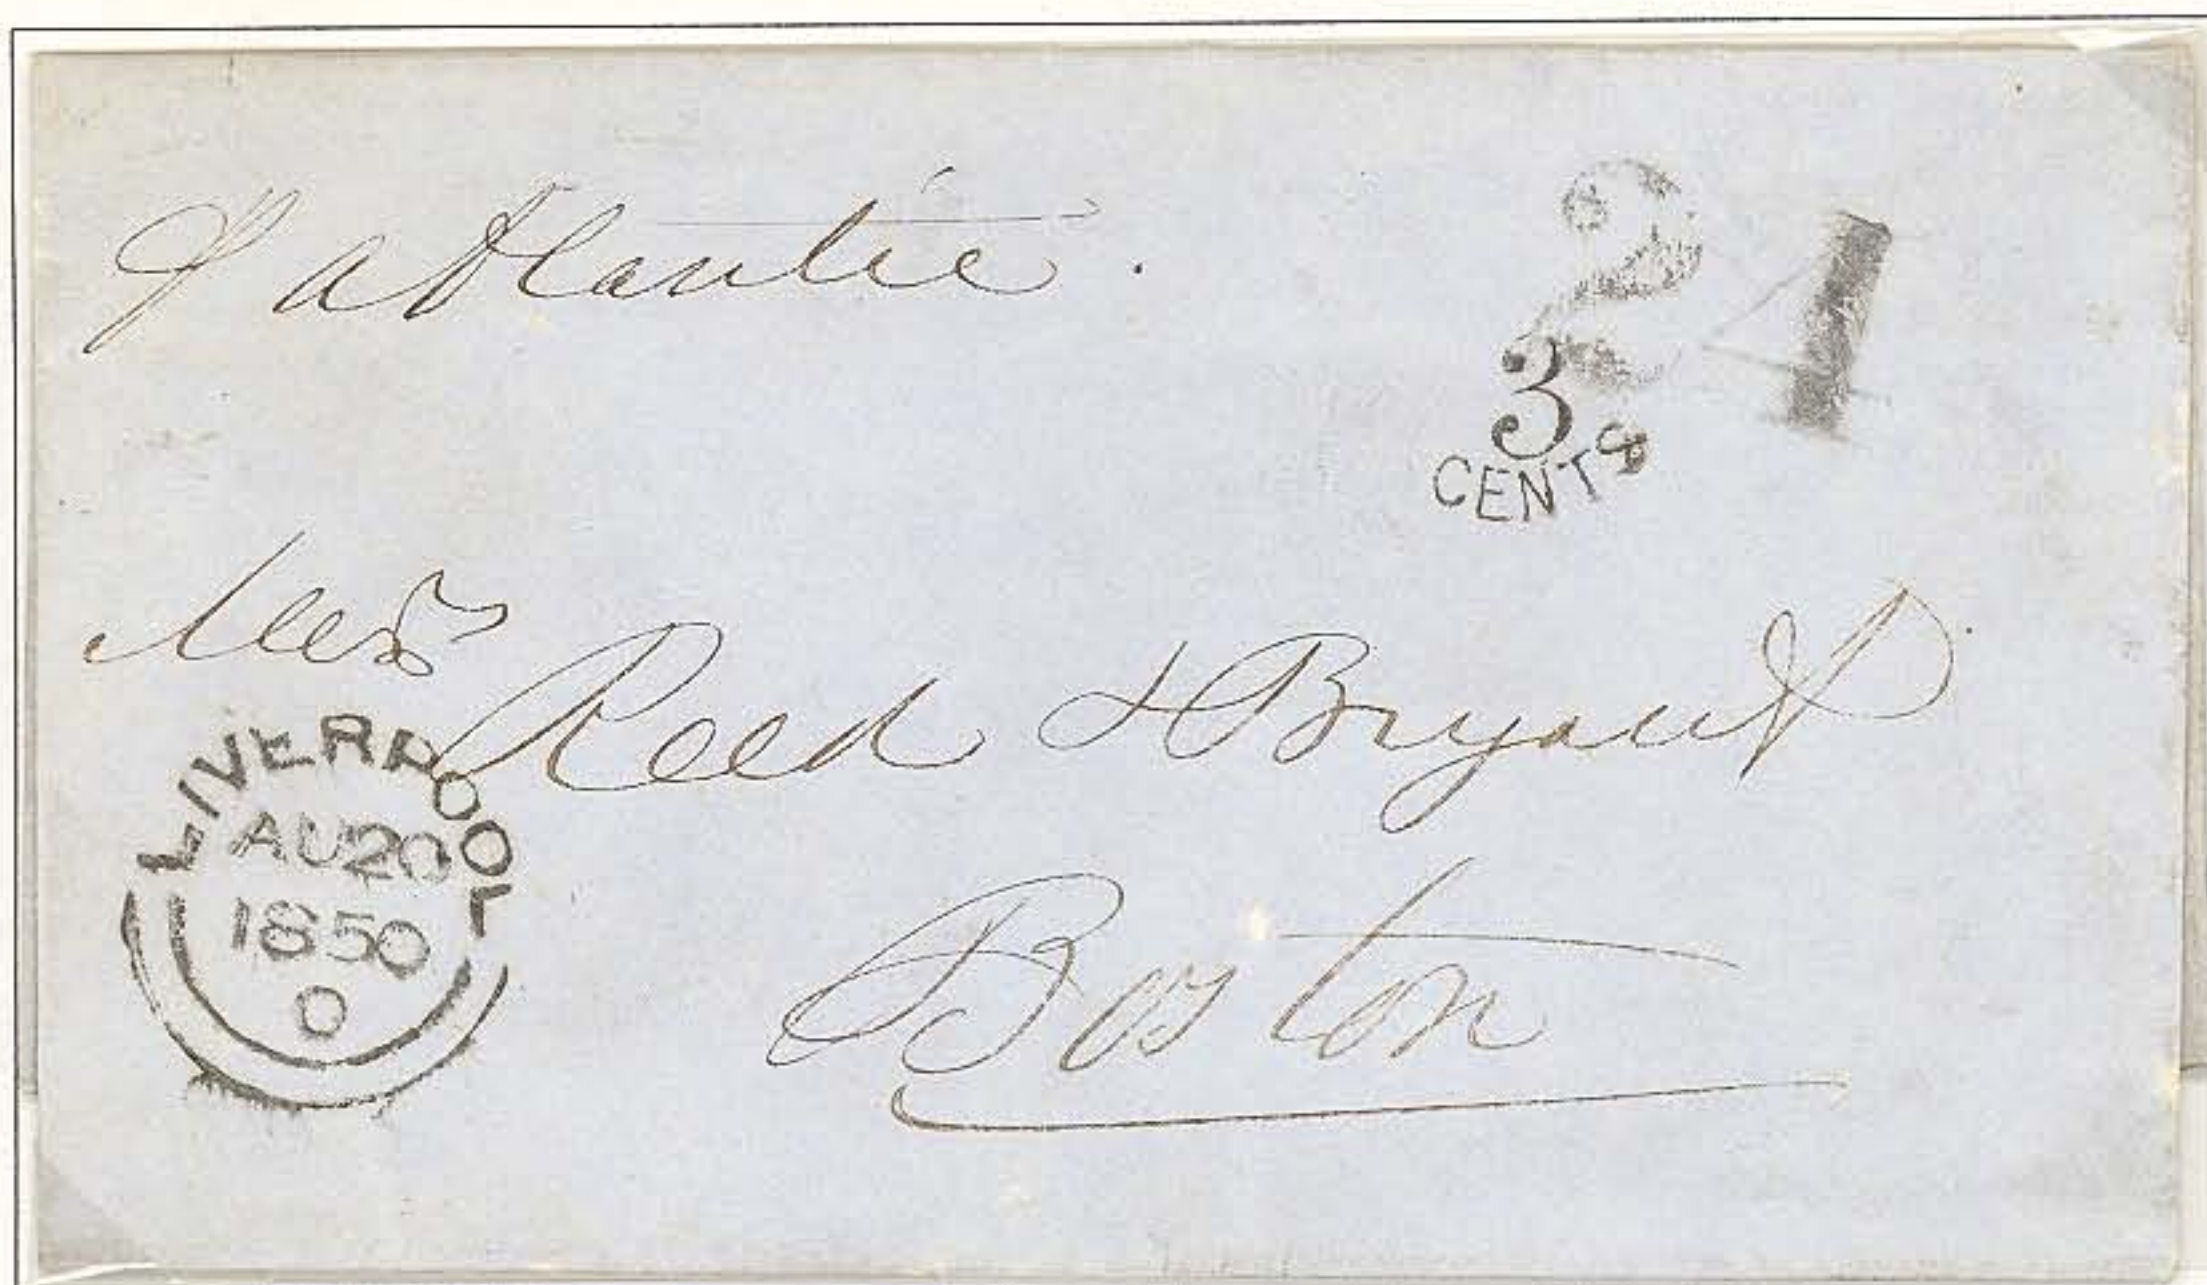 ℘ atlantic.
24
3
CENTS
Messrs
Reed & Bryant
Boston
LIVERPOOL
AU20
1850
O